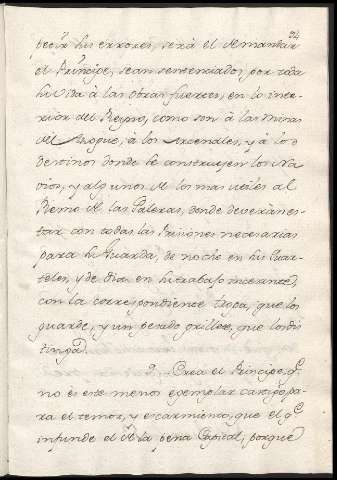 24
pecir sus errores, será el demandar
el Príncipe, sean sentenciados por toda
su vida á las obras fuertes, en lo inte-
rior del Reyno, como son á las Minas
del Azogue, á los Arcenales, y á los
destinos donde se construyen los Na
vios, y algunos de los mas utiles al
Remo de las Galeras, donde deveràn es-
tar con todas las Prisiones necesarias
para su Guarda, de noche en sus Quar-
teles, y de dia en su trabajo incesante,
con la correspondiente tropa, que los
guarde, y un pesado grillete, que los dis
tinga.
Crea el Principe, q.e
no és este menos egemplar castigo, pa-
ra el temor, y escarmiento, que el q.e
infunde el de la pena Capital, porque